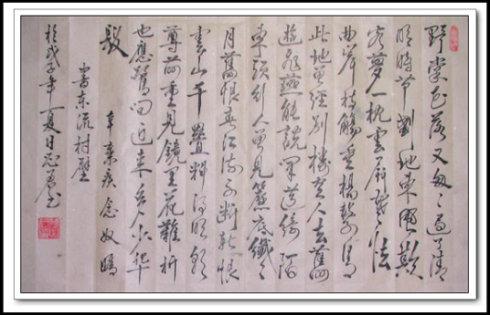 野棠花落又匆々過了清
明時节刬地東風欺
客夢一枕雲屏寒怯
曲岸持觴垂楊繫馬
此地曾經別樓空人去舊
遊飛燕能説聞道綺陌
東頭行人曾見簾底纖々
月舊恨春江流不斷新恨
雲山千疊料得明朝
尊前重見鏡里花難折
也應驚問近來多少華
髮
辛棄疾念奴嬌
書東流村壁
於戊子年夏日